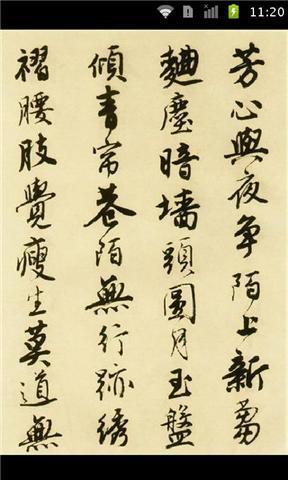 11:20
芳心與夜争陌上新芻
麯塵暗墙頭圓月玉盤
傾青帘巷陌無行跡綉
褶腰肢覺瘦生莫道無